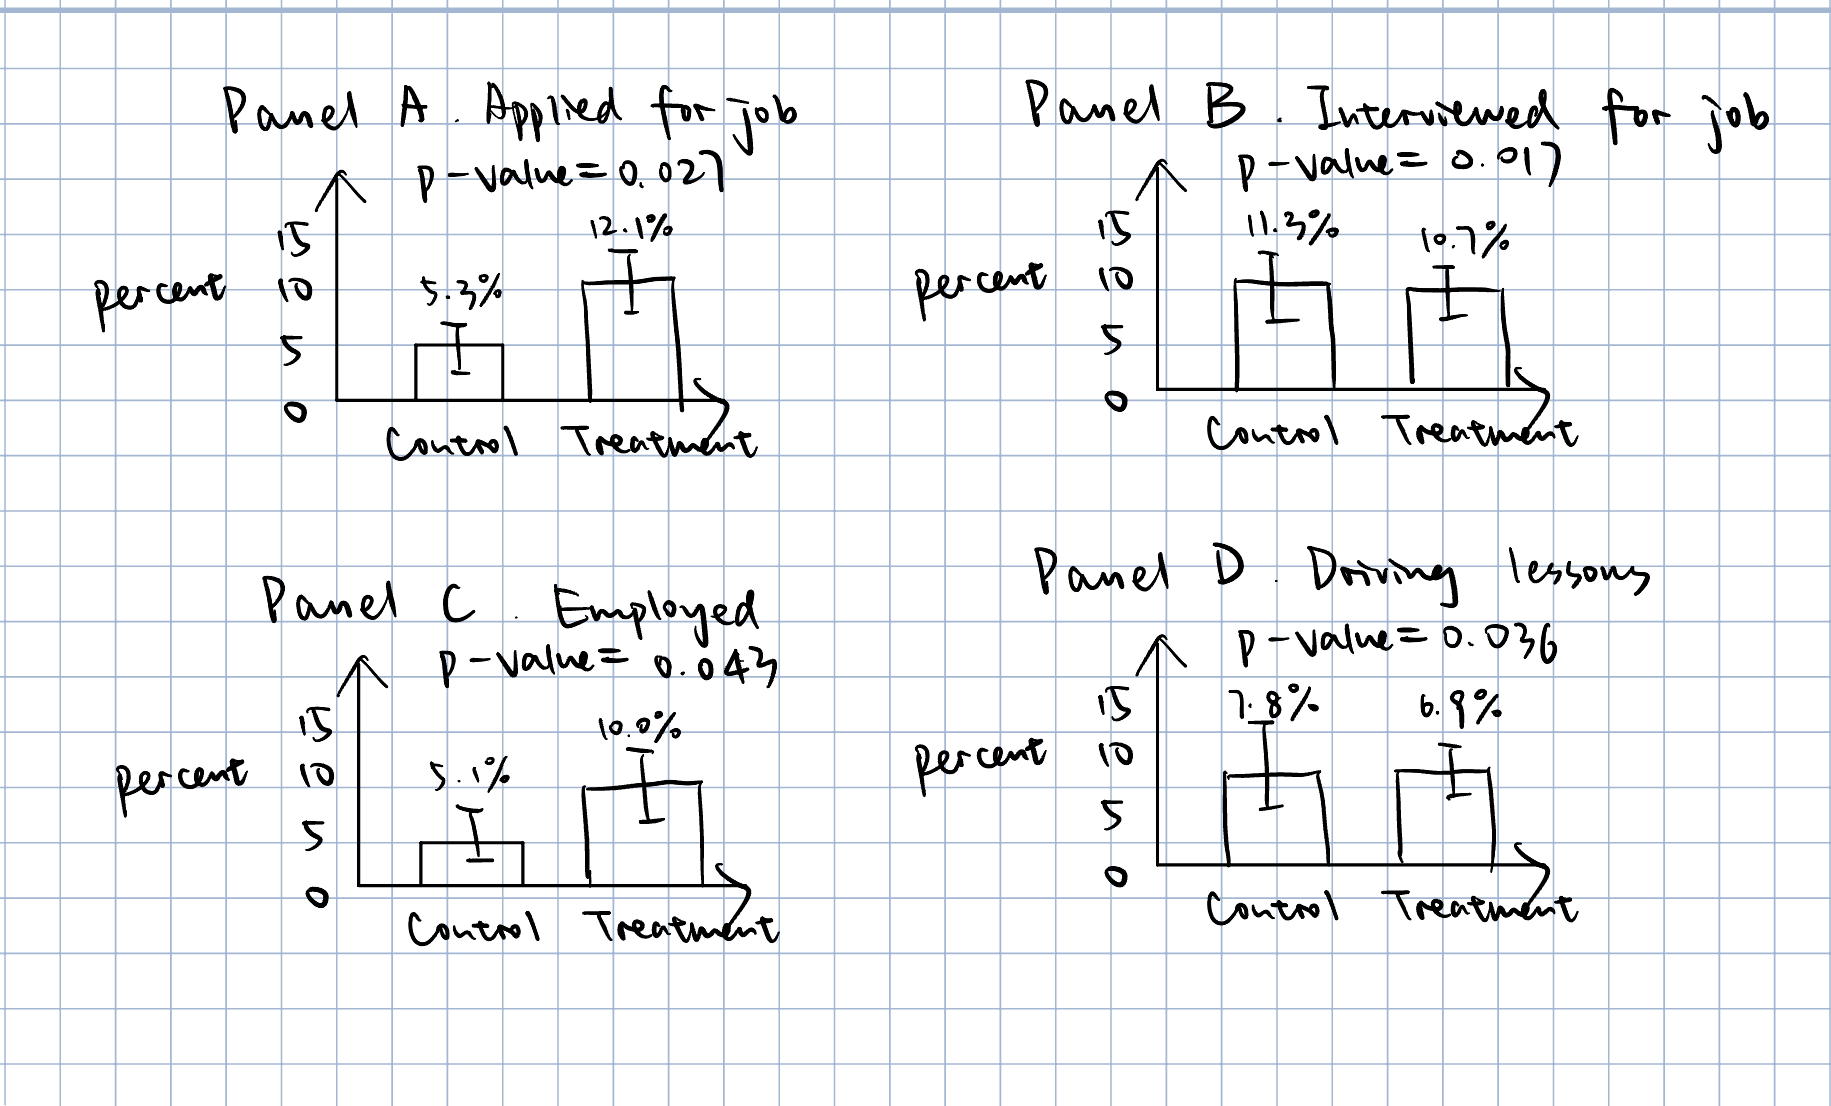 Panel A. Applied for job
p-value = 0.027
15
10
5
0
percent
5.3%
12.1%
Control Treatment
Panel B. Interviewed for job
p-value = 0.017
15
10
5
0
percent
11.3%
10.7%
Control Treatment
Panel C. Employed
p-value = 0.043
15
10
5
0
percent
5.1%
10.0%
Control Treatment
Panel D. Driving lessons
p-value = 0.036
15
10
5
0
percent
7.8%
6.9%
Control Treatment